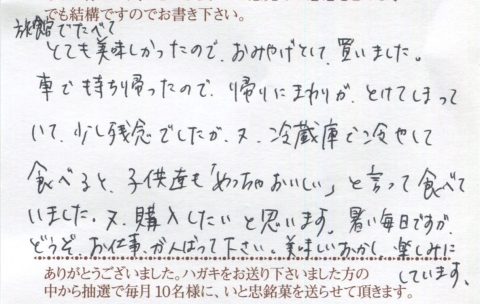 でも結構ですのでお書き下さい。
旅館でたべて
とても美味しかったので、おみやげとして、買いました。
車で持ち帰ったので、帰りにまわりが、とけてしまって
いて、少し残念でしたが、又、冷蔵庫で冷やして
食べると、子供達も「めっちゃおいしい」と言って食べて
いました。又、購入したいと思います。暑い毎日ですが、
どうぞ、お仕事、がんばって下さい。美味しいおかし、楽しみに
しています。
ありがとうございました。ハガキをお送り下さいました方の
中から抽選で毎月10名様に、いと忠銘菓を送らせて頂きます。